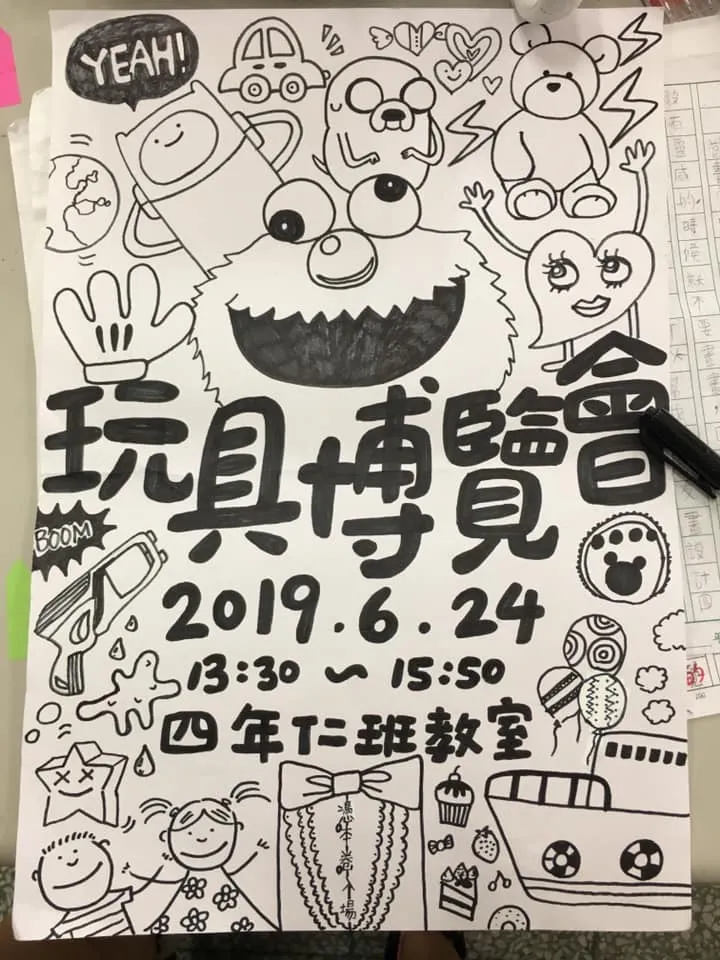 YEAH!
玩具博覽會
BOOM
2019.6.24
13:30 ~ 15:50
四年仁班教室
憑本券入場